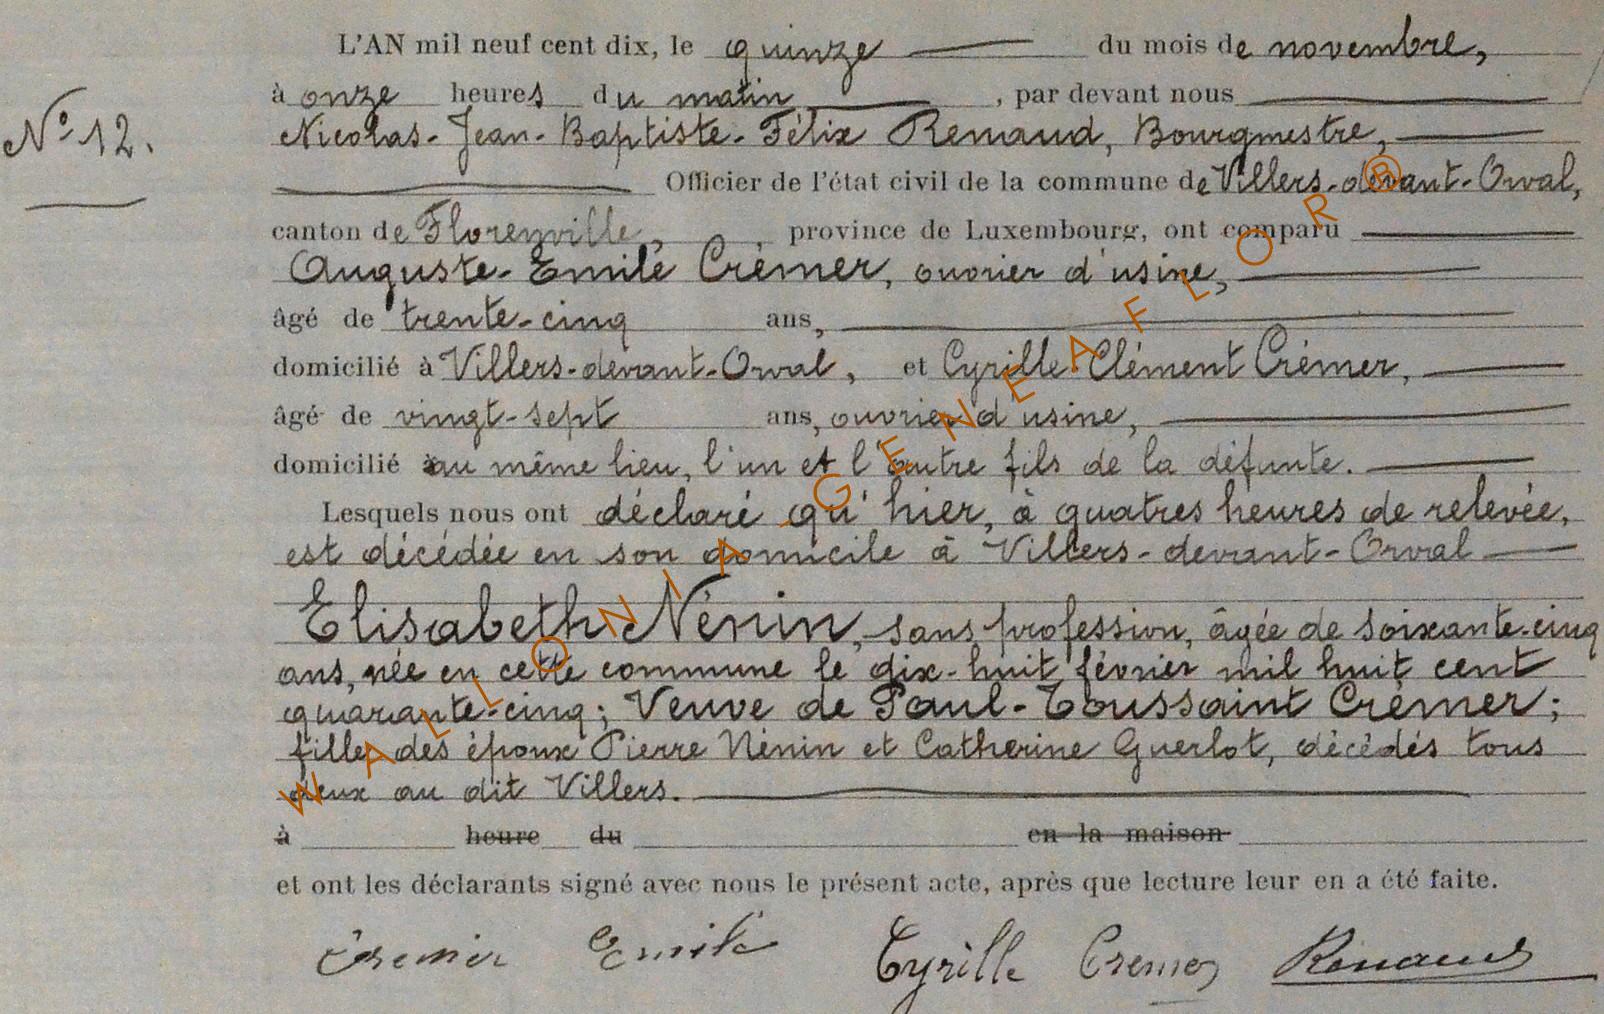 L'AN mil neuf cent dix, le quinze du mois de novembre,
à onze heures du matin, par devant nous
Nº 12.
Nicolas-Jean-Baptiste-Félix Renaud, Bourgmestre,
Officier de l'état civil de la commune de Villers-devant-Orval,
canton de Florenville, , province de Luxembourg, ont comparu
Auguste-Emile Crémer, ouvrier d'usine,
âgé de trente-cinq ans,
domicilié à Villers-devant-Orval, et Cyrille-Clément Crémer,
âgé de vingt-sept ans, ouvrier d'usine,
domicilié au même lieu, l'un et l'autre fils de la défunte.
Lesquels nous ont déclaré qu'hier, à quatres heures de relevée,
est décédée en son domicile à Villers-devant-Orval
Elisabeth Nénin, sans profession, âgée de soixante-cinq
ans, née en cette commune le dix-huit février mil huit cent
quarante-cinq; Veuve de Paul-Toussaint Crémer;
fille des époux Pierre Nénin et Catherine Guerlot, décédés tous
deux au dit Villers.
à heure du en la maison
et ont les déclarants signé avec nous le présent acte, après que lecture leur en a été faite.
Crémer Emile Cyrille Cremer Renaud
WALLONIA-GENEAFLOR®